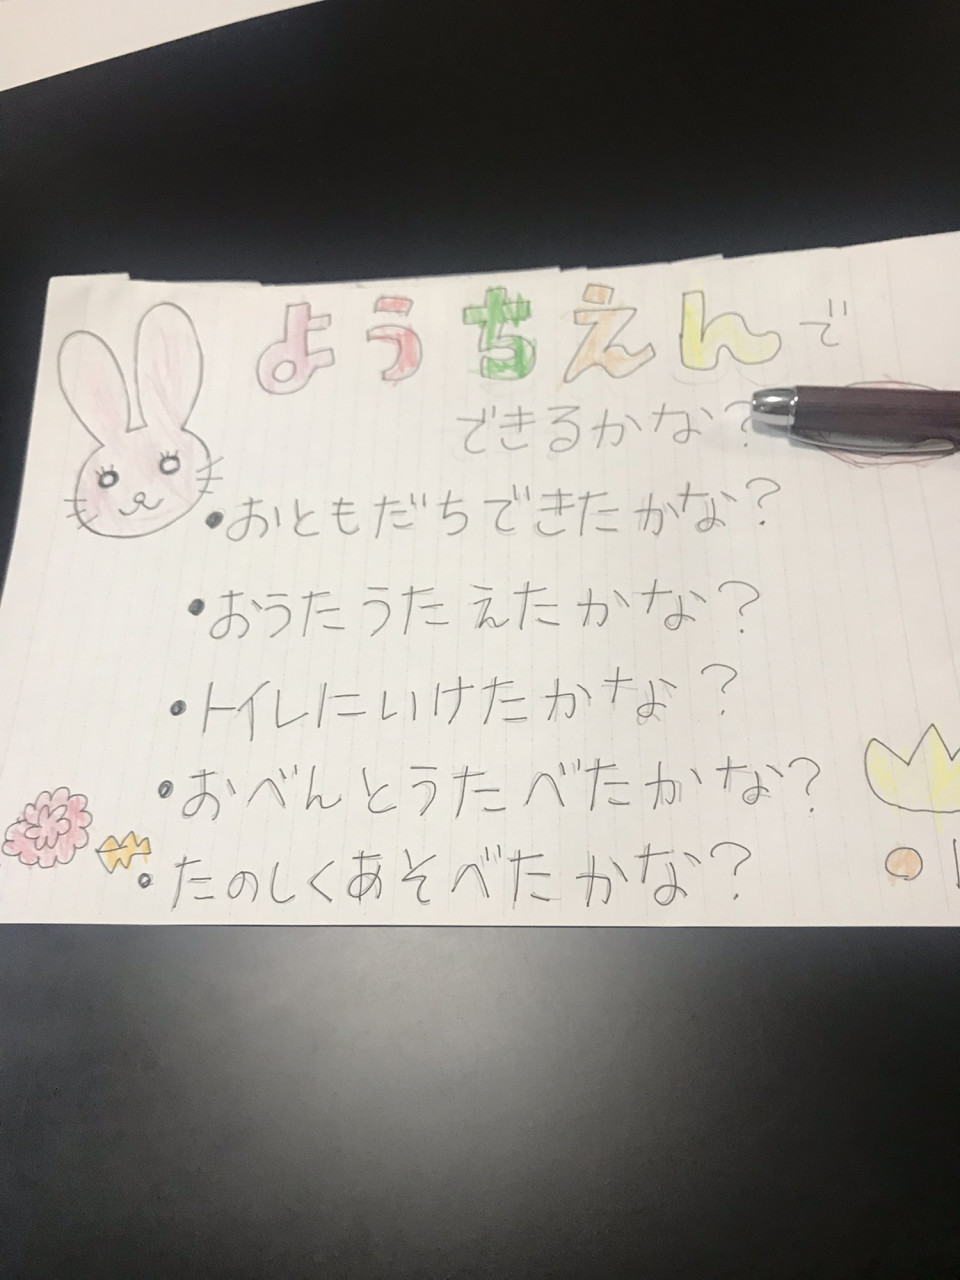 ようちえんで
できるかな?
・おともだちできたかな?
・おうたうたえたかな?
・トイレにいけたかな?
・おべんとうたべたかな?
・たのしくあそべたかな?